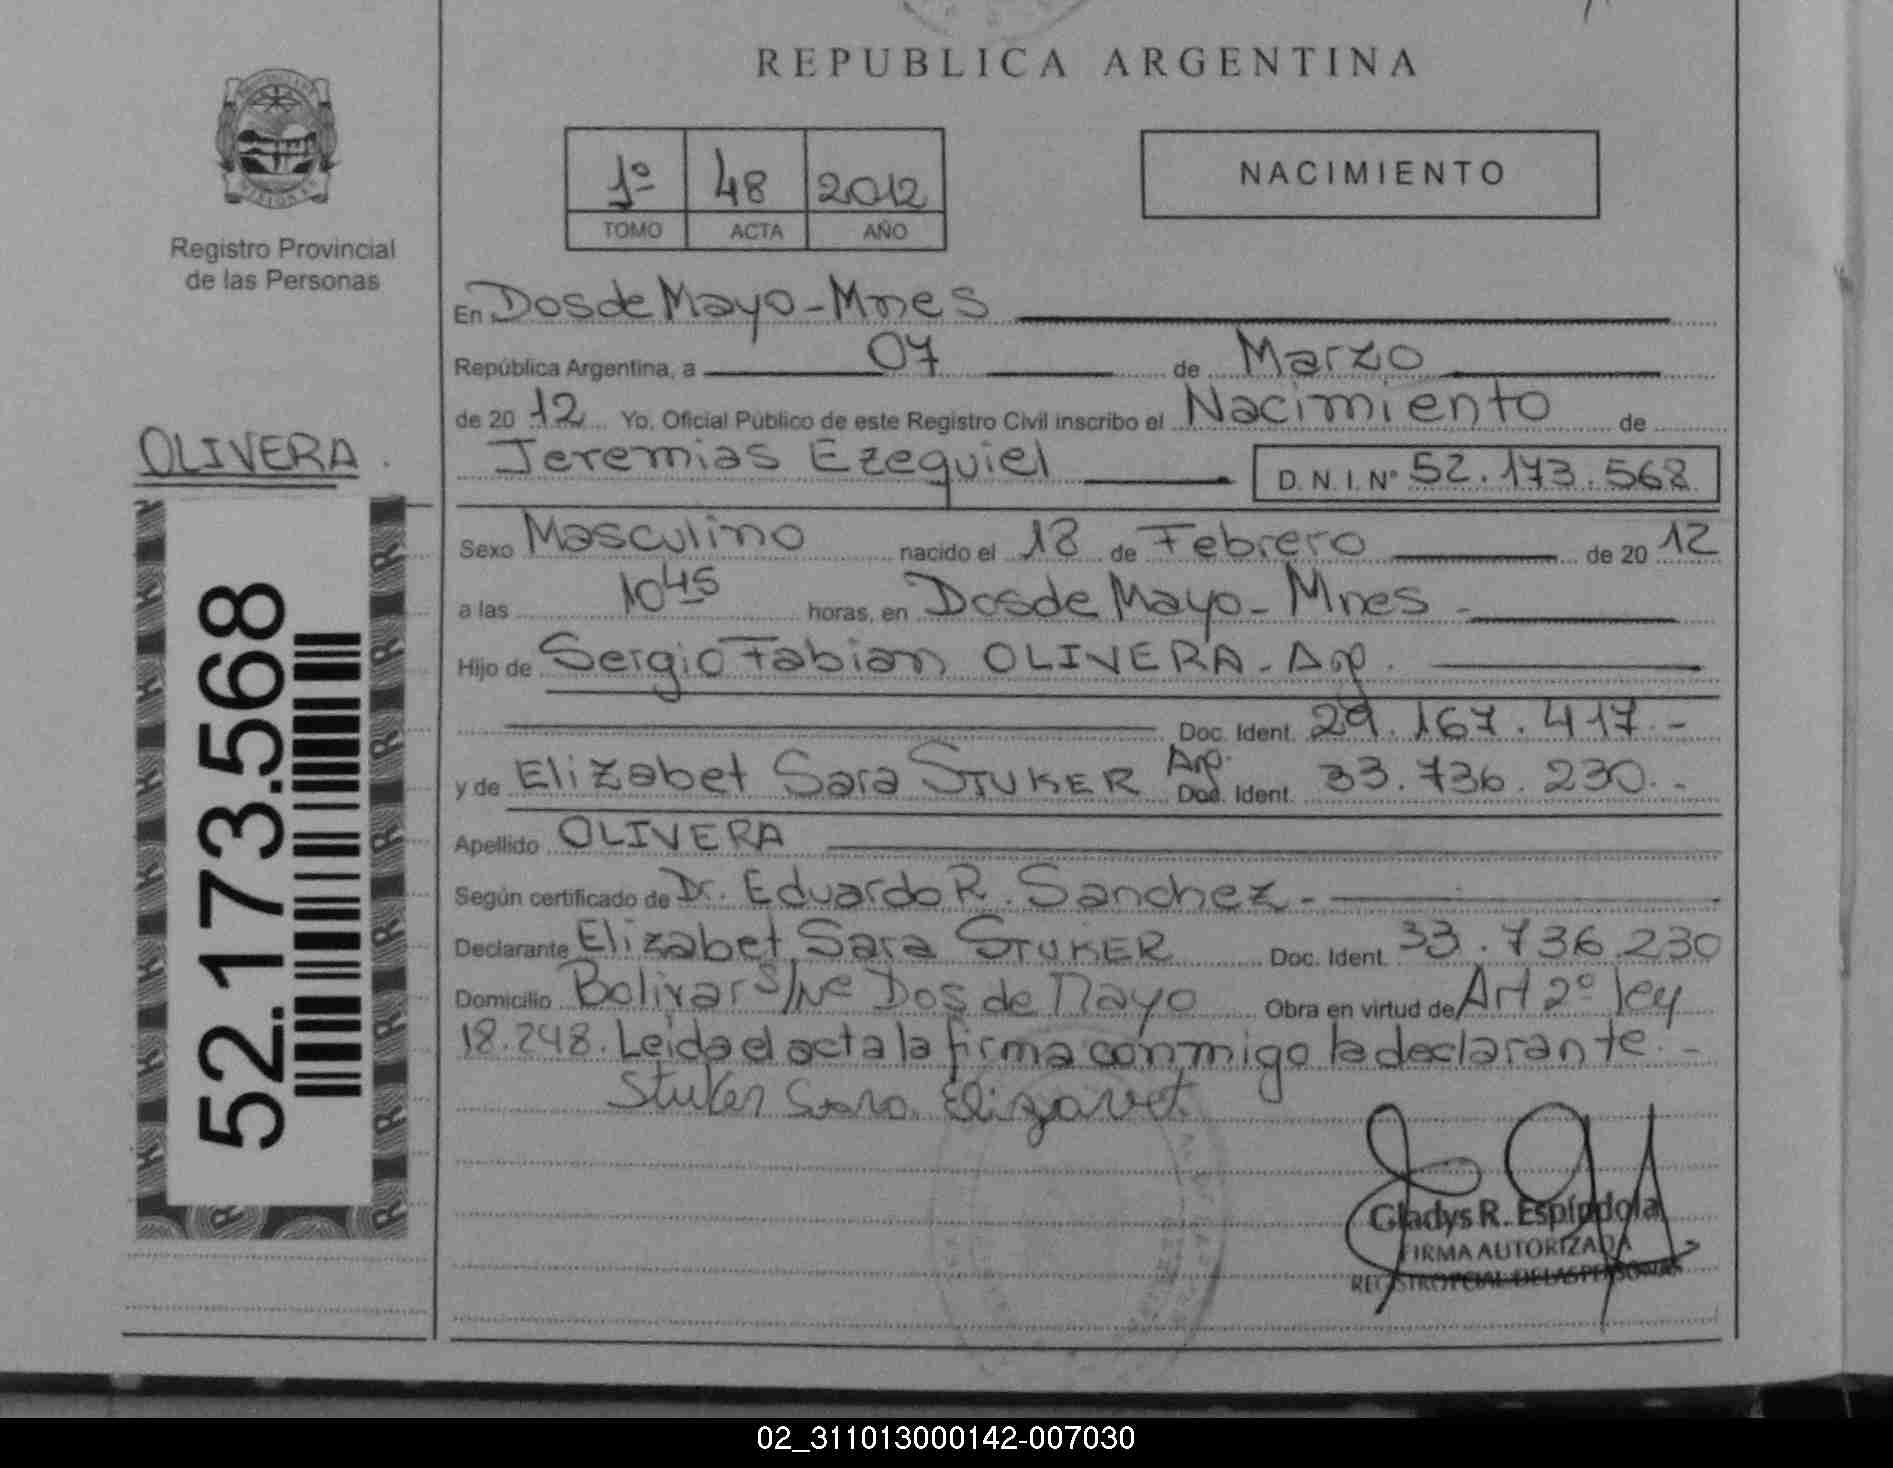 REPUBLICA ARGENTINA
1º 48 2012
TOMO ACTA AÑO
NACIMIENTO
Registro Provincial
de las Personas
OLIVERA.
52.173.568
En Dos de Mayo - Mnes
República Argentina, a 07 de Marzo
de 20 12 Yo, Oficial Público de este Registro Civil inscribo el Nacimiento de
Jeremias Ezequiel D.N.I. Nº 52.173.568
Sexo Masculino nacido el 18 de Febrero de 20 12
a las 10 45 horas, en Dos de Mayo - Mnes -
Hijo de Sergio Fabian OLIVERA - Arg.
Doc. Ident. 29.167.417.-
y de Elizabet Sara STUKER Arg. Doc. Ident. 33.736.230.-
Apellido OLIVERA
Según certificado de Dr. Eduardo R. Sanchez -
Declarante Elizabet Sara STUKER Doc. Ident. 33.736.230
Domicilio Bolivar S/Nº Dos de Mayo Obra en virtud de Art 2º ley
18.248. Leida el acta la firma conmigo la declarante. -
Stuker Sara Elizavet
Gladys R. Espíndola
FIRMA AUTORIZADA
REGISTRO PCIAL. DE LAS PERSONAS
02_311013000142-007030